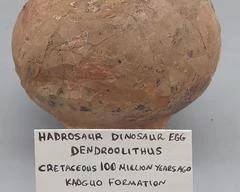 HADROSAUR DINOSAUR EGG
DENDROOLITHUS
CRETACEOUS 100 MILLION YEARS AGO
KAOGUO FORMATION